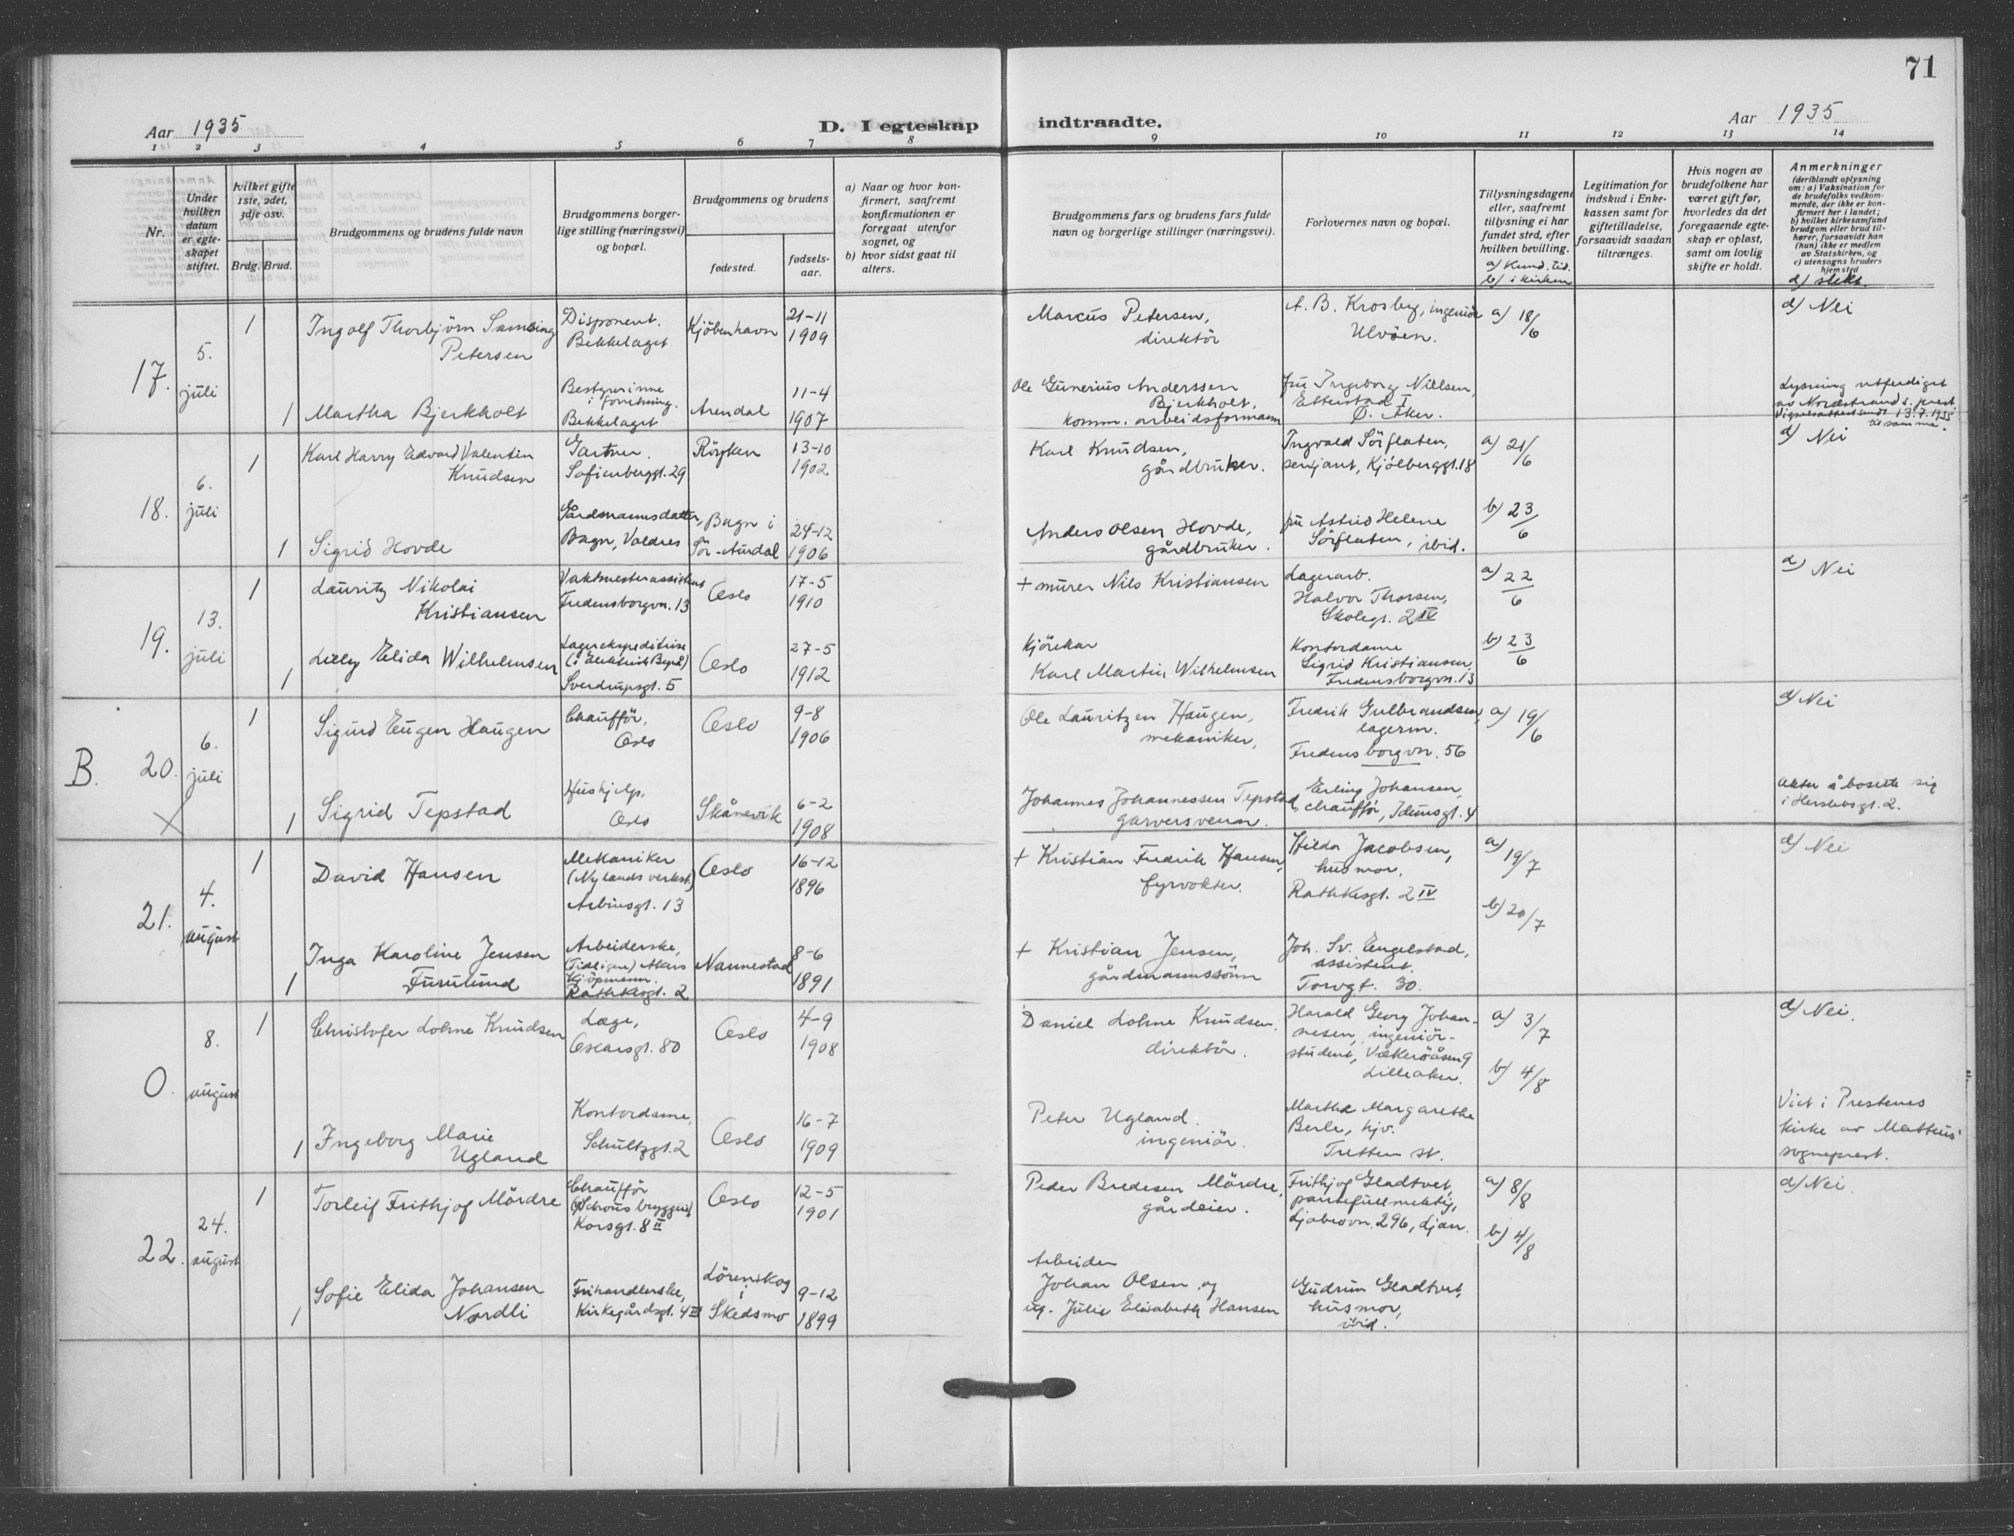 71
Aar 1935
D. I egteskap
indtraadte.
Aar 1935
1 2 3 4 5 6 7 8 9 10 11 12 13 14
Nr.
Under
hvilken
datum
er egte-
skapet
stiftet.
hvilket gifte
1ste, 2det,
3dje osv.
Brdg. Brud.
Brudgommens og brudens fulde navn
Brudgommens borger-
lige stilling (næringsvei)
og bopæl.
Brudgommens og brudens
fødested.
fødsels-
aar.
a) Naar og hvor kon-
firmert, saafremt
konfirmationen er
foregaat utenfor
sognet, og
b) hvor sidst gaat til
alters.
Brudgommens fars og brudens fars fulde
navn og borgerlige stillinger (næringsvei).
Forlovernes navn og bopæl.
Tillysningsdagene
eller, saafremt
tillysning ei har
fundet sted, efter
hvilken bevilling.
a) Kund. tid.
b) i kirken
Legitimation for
indskud i Enke-
kassen samt for
giftetilladelse,
forsaavidt saadan
tiltrænges.
Hvis nogen av
brudefolkene har
været gift før,
hvorledes da det
foregaaende egte-
skap er opløst,
samt om lovlig
skifte er holdt.
Anmerkninger
(deriblandt oplysning
om: a) Vaksination for
de brudefolks vedkom-
mende, der ikke er kon-
firmert her i landet;
b) hvilket kirkesamfund
brudgom eller brud til-
hører, forsaavidt han
(hun) ikke er medlem
av Statskirken, og
c) utensogns bruders
hjemsted
d) slekt.
17.
5.
juli
1
Ingolf Thorbjörn Samsing
Petersen
Disponent.
Bekkelaget
Kjöbenhavn
21-11
1909
Marcus Petersen,
direktör
A. B. Krosby, ingeniör
Ulvöen.
a) 18/6
d) Nei
1
Martha Bjerkholt
Bestyrerinne
i forretning.
Bekkelaget
Arendal
11-4
1907
Ole Gunerius Anderssen
Bjerkholt,
komm. arbeidsformann
fru Ingeborg Nielsen,
Etterstad I
Ö. Aker.
Lysning utferdiget
av Nordstrands s. prest
Vigselsattest sendt 13.7.1935
til samme.
18.
6.
juli
1
Karl Harry Edvard Valentin
Knudsen
Gartner.
Sofienberggt. 29
Röyken
13-10
1902
Karl Knudsen,
gårdbruker.
Ingvald Sörflaten,
sersjant, Kjölberggt. 18
a) 21/6
d) Nei
1
Sigrid Hovde
Gårdmannsdatter,
Bagn, Valdres
Bagn i
Sör-Aurdal
24-12
1906
Anders Olsen Hovde,
gårdbruker.
fru Astrid Helene
Sörflaten, ibid.
b) 23/6
19.
13.
juli
1
Lauritz Nikolai
Kristiansen
Vaktmesterassistent
Fredensborgvn. 13
Oslo
17-5
1910
+ murer Nils Kristiansen
Lagerarb.
Halvor Thorsen,
Skolegt. 2 IV
a) 22/6
d) Nei
1
Lilly Elida Wilhelmsen
Lagerekspeditrise
(i Elektrisk Byrå)
Sverdrupsgt. 5
Oslo
27-5
1912
Kjörekar
Karl Martin Wilhelmsen
Kontordame
Sigrid Kristiansen,
Fredensborgvn. 13
b) 23/6
B.
20.
6.
juli
1
Sigurd Eugen Haugen
Chaufför,
Oslo
Oslo
9-8
1906
Ole Lauritzen Haugen,
mekaniker,
Fredrik Gulbrandsen,
lagerm.
Fredensborgvn. 56
a) 19/6
d) Nei
1
Sigrid Tepstad
Hushjelp.
Oslo
Skånevik
6-2
1908
Johannes Johannessen Tepstad,
garversvenn.
Erling Johansen,
chaufför, Idunsgt. 4
akter å bosette sig
i Herslebsgt. 2.
21.
4.
august
1
David Hansen
Mekaniker
(Nylands verkst.)
Arbinsgt. 13
Oslo
16-12
1896
+ Kristian Fredrik Hansen,
fyrvokter.
Hilda Jacobsen,
husmor.
Rathkesgt. 2 IV
a) 19/7
d) Nei
1
Inga Karoline Jensen
Furulund
Arbeiderske,
(Tidligere) Akers
Kjöpmenn.
Rathkesgt. 2
Nannestad
8-6
1891
+ Kristian Jensen,
gårdmannssönn
Joh. Sv. Engelstad,
assistent.
Torvgt. 30.
b) 20/7
0.
8.
august
1
Christofer Lohne Knudsen
Læge,
Oscarsgt. 80
Oslo
4-9
1908
Daniel Lohne Knudsen.
direktör.
Harald Georg Johan-
nesen, ingeniör-
student, Vækeröåsen 9
Lilleaker.
a) 3/7
b) 4/8
d) Nei.
1
Ingeborg Marie
Ugland
Kontordame,
Schultzgt. 2
Oslo
16-7
1909
Peter Ugland.
ingeniör.
Martha Margarethe
Berle, hjv.
Tretten st.
Viet i Prestenes
kirke av Matteus'
sogneprest.
22.
24.
august
1
Torleif Frithjof Mördre
Chaufför
(Schous bryggeri)
Korsgt. 8 II
Oslo
12-5
1901
Peder Bredesen Mördre,
gårdeier.
Frithjof Gladtvet,
pantefullmektig,
Ljabrovn. 296, Ljan.
a) 8/8
b) 4/8
d) Nei.
1
Sofie Elida Johansen
Nordli
Frihandlerske,
Kirkegårdsgt. 4 III
Lörenskog
i
Skedsmo
9-12
1899
Arbeider
Johan Olsen og
ug. Julie Elisabeth Hansen
Gudrun Gladtvet,
husmor,
ibid.